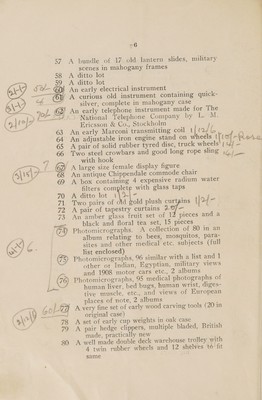 6
57 A bundle of 17 old lantern slides, military
scenes in mahogany frames
58 A ditto lot
59 A ditto lot
60 An early electrical instrument
61 A curious old instrument containing quick-
silver, complete in mahogany case
62 An early telephone instrument made for The
National Telephone Company by L. M.
Ericsson & Co., Stockholm
63 An early Marconi transmitting coil
64 An adjustable iron engine stand on wheels
65 A pair of solid rubber tyred disc, truck wheels
66 Two steel crowbars and good long rope sling
with hook
67 A large size female display figure
68 An antique Chippendale commode chair
69 A box containing 4 expensive radium water
filters complete with glass taps
70 A ditto lot
71 Two pairs of old gold plush curtains
72 A pair of tapestry curtains
73 An amber glass fruit set of 12 pieces and a
black and floral tea set, 15 pieces
74 Photomicrographs. A collection of 80 in an
album relating to bees, mosquitos, para-
sites and other medical etc. subjects (full
list enclosed)
75 Photomicrographs, 96 similar with a list and 1
other of Indian, Egyptian, military views
and 1908 motor cars etc., 2 albums
76 Photomicrographs, 95 medical photographs of
human liver, bed bugs, human wrist, diges-
tive muscle, etc., and views of European
places of note, 2 albums
77 A very fine set of early wood carving tools (20 in
original case)
78 A set of early cup weights in oak case
79 A pair hedge clippers, multiple bladed, British
made, practically new
80 A well made double deck warehouse trolley with
4 twin rubber wheels and 12 shelves to fit
same